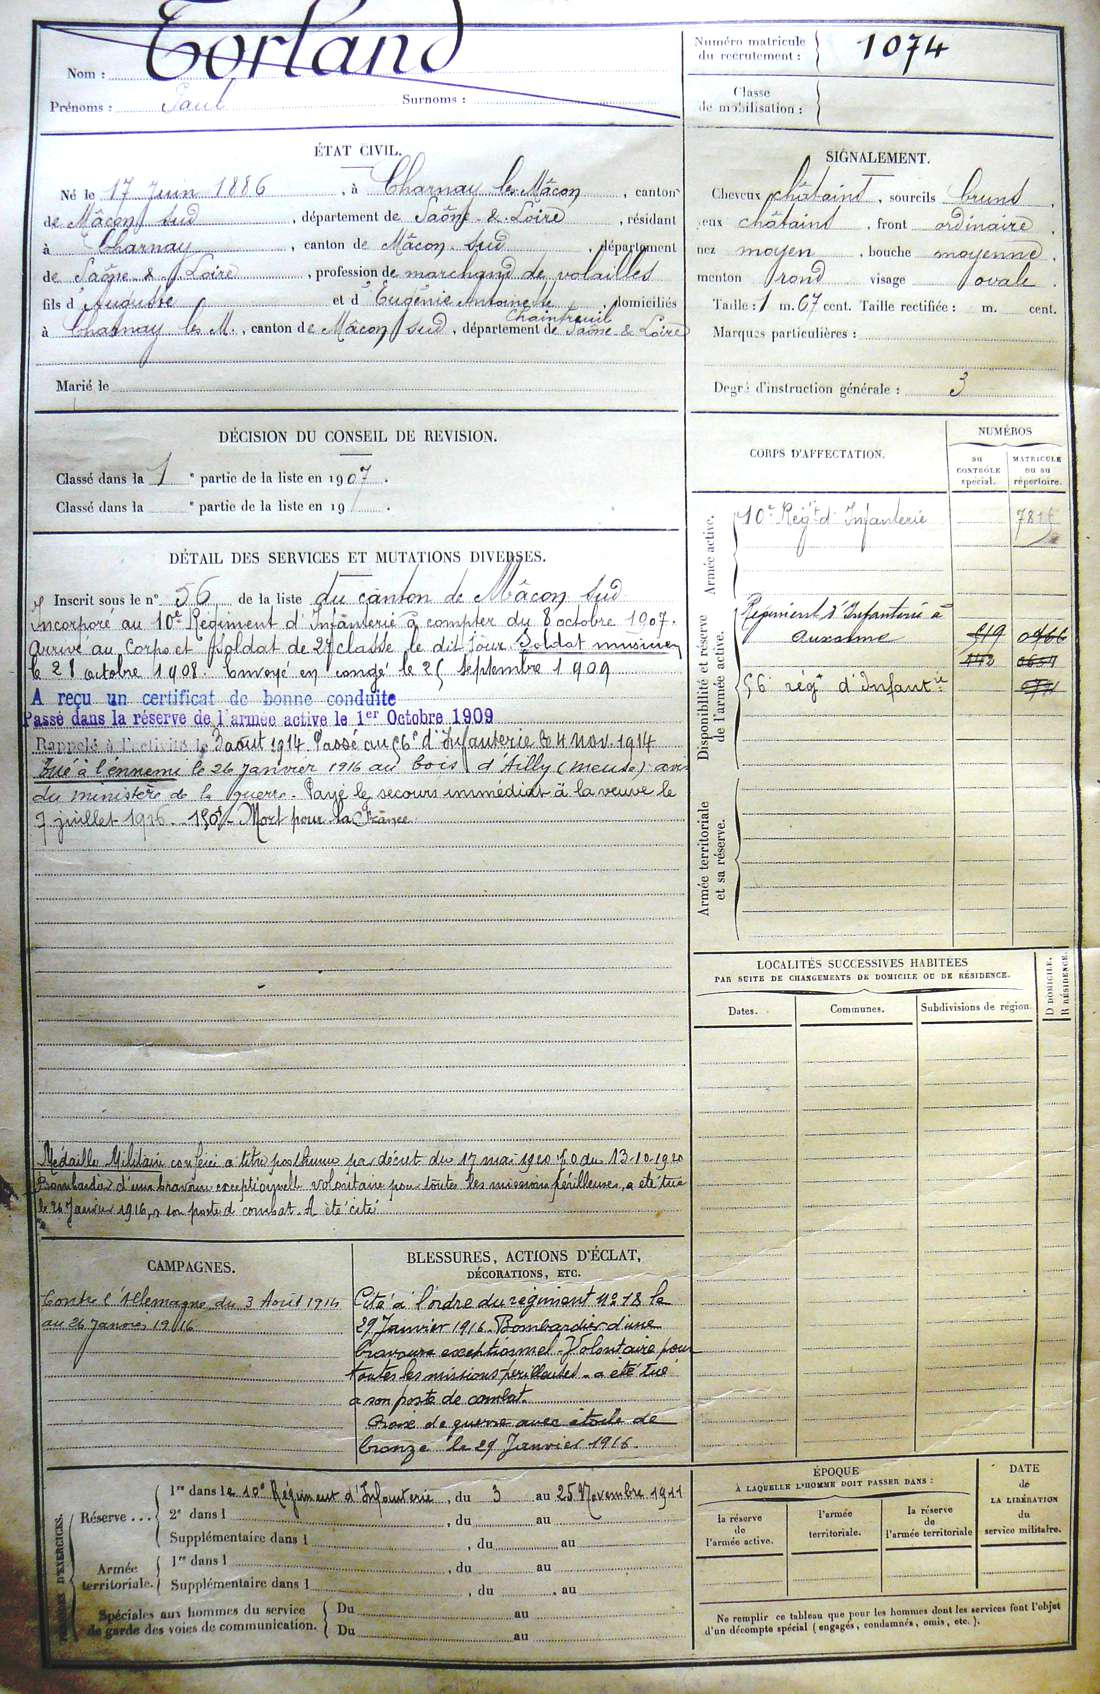 Nom : Torland
Prénoms : Paul Surnoms :
Numéro matricule du recrutement : 1074
Classe de mobilisation :
ÉTAT CIVIL.
Né le 17 Juin 1886, à Charnay les Mâcon, canton
de Mâcon sud, département de Saône & Loire, résidant
à Charnay, canton de Mâcon sud, département
de Saône & Loire, profession de marchand de volailles
fils d'Auguste et d'Eugénie Antoinette Chaintreuil, domiciliés
à Charnay les M., canton de Mâcon sud, département de Saône & Loire
Marié le
SIGNALEMENT.
Cheveux châtains, sourcils bruns,
yeux châtains, front ordinaire,
nez moyen, bouche moyenne,
menton rond visage ovale.
Taille : 1 m. 67 cent. Taille rectifiée : m. cent.
Marques particulières :
Degré d'instruction générale : 3
DÉCISION DU CONSEIL DE REVISION.
Classé dans la 1e partie de la liste en 1907.
Classé dans la e partie de la liste en 19 .
DÉTAIL DES SERVICES ET MUTATIONS DIVERSES.
Inscrit sous le n° 56 de la liste du canton de Mâcon sud
Incorporé au 10e Régiment d'Infanterie à compter du 8 octobre 1907.
Arrivé au Corps et soldat de 2e classe le dit jour. Soldat musicien
le 28 octobre 1908. Envoyé en congé le 25 septembre 1909
A reçu un certificat de bonne conduite
Passé dans la réserve de l'armée active le 1er Octobre 1909
Rappelé à l'activité le 3 août 1914. Passé au 56e d'Infanterie le 4 nov. 1914
Tué à l'ennemi le 26 Janvier 1916 au bois d'Ailly (Meuse) avis
du ministère de la guerre. Payé le secours immédiat à la veuve le
7 juillet 1916. 150f. Mort pour la France
Médaille Militaire conférée à titre posthume par décret du 17 mai 1920 J.O du 13-10-1920
Bombardier d'une bravoure exceptionnelle volontaire pour toutes les missions périlleuses, a été tué
le 26 Janvier 1916, à son poste de combat. A été cité
CORPS D'AFFECTATION.
NUMÉROS
AU CONTRÔLE spécial.
MATRICULE OU AU répertoire.
Armée active.
10e Régt d'Infanterie
Disponibilité et réserve de l'armée active.
Régiment d'Infanterie à
Auxonne 619
56 régt d'Infantie
Armée territoriale et sa réserve.
LOCALITÉS SUCCESSIVES HABITÉES
PAR SUITE DE CHANGEMENTS DE DOMICILE OU DE RÉSIDENCE.
Dates. Communes. Subdivisions de région.
D DOMICILE.
R RÉSIDENCE.
CAMPAGNES.
Contre l'Allemagne du 3 Août 1914
au 26 Janvier 1916
BLESSURES, ACTIONS D'ÉCLAT,
DÉCORATIONS, ETC.
Cité à l'ordre du régiment n° 18 le
29 Janvier 1916. Bombardier d'une
bravoure exceptionnel. Volontaire pour
toutes les missions périlleuses. a été tué
à son poste de combat.
Croix de guerre avec étoile de
bronze le 29 Janvier 1916.
PÉRIODES D'EXERCICES.
Réserve ...
1re dans le 10e Régiment d'Infanterie, du 3 au 25 Novembre 1911
2e dans l , du au
Supplémentaire dans l , du au
Armée territoriale.
1re dans l , du au
Supplémentaire dans l , du au
Spéciales aux hommes du service
de garde des voies de communication.
Du au
Du au
ÉPOQUE
À LAQUELLE L'HOMME DOIT PASSER DANS :
la réserve de l'armée active.
l'armée territoriale.
la réserve de l'armée territoriale
DATE
de
LA LIBÉRATION
du
service militaire.
Ne remplir ce tableau que pour les hommes dont les services font l'objet
d'un décompte spécial (engagés, condamnés, omis, etc.).